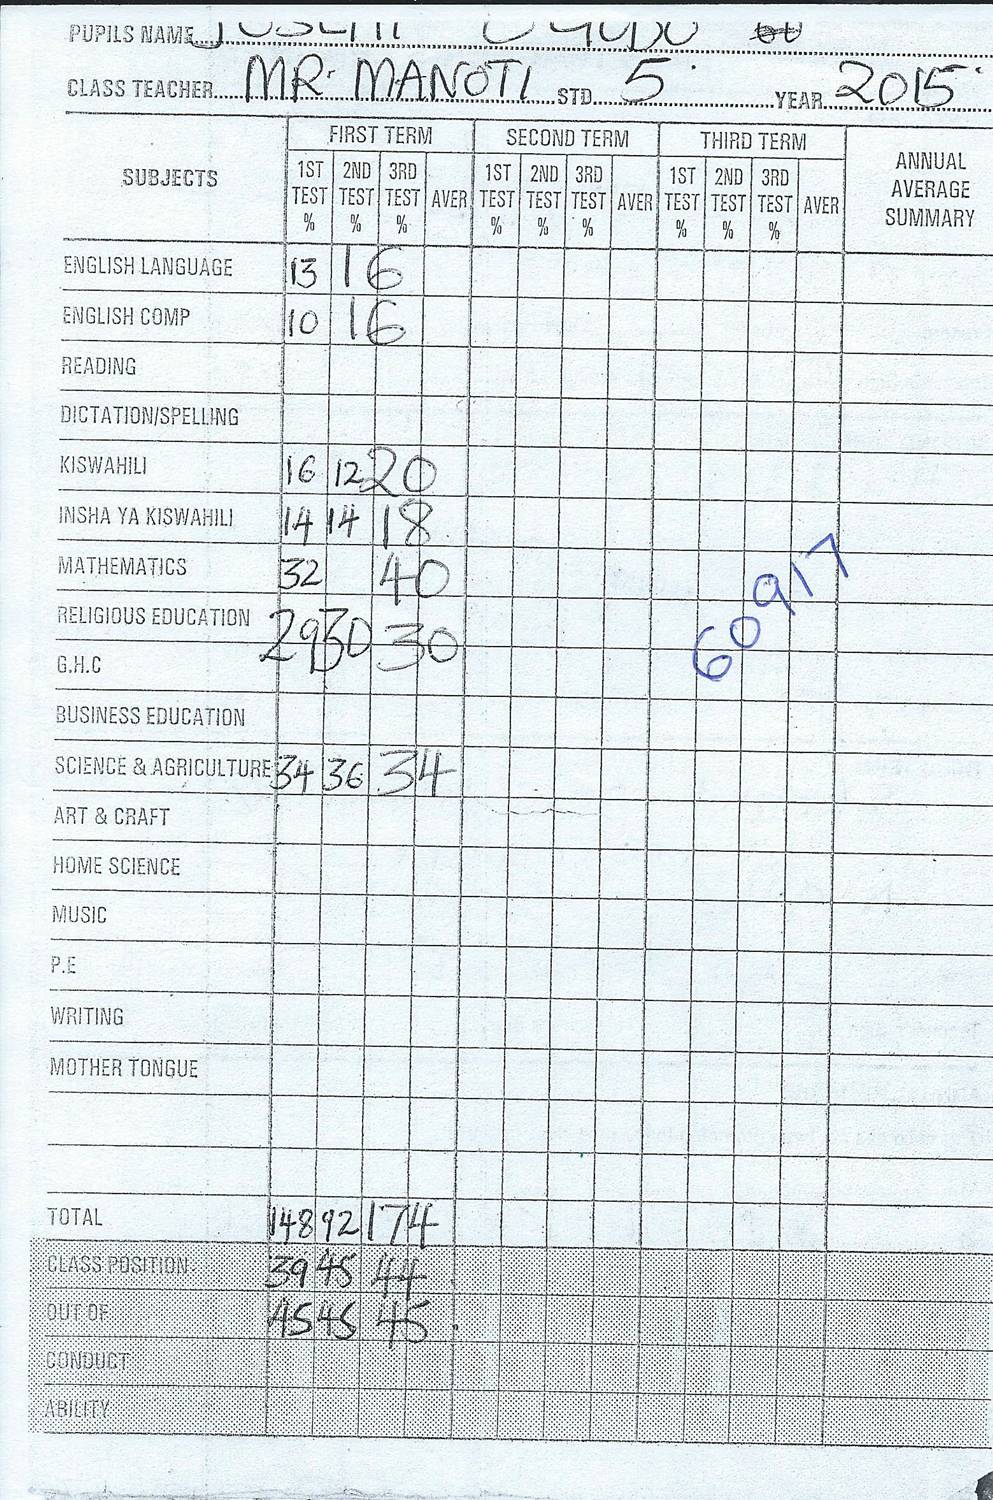 PUPILS NAME JOSEPH
CLASS TEACHER MR. MANOTI STD 5 YEAR 2015
SUBJECTS FIRST TERM SECOND TERM THIRD TERM ANNUAL AVERAGE SUMMARY
1ST TEST % 2ND TEST % 3RD TEST % AVER 1ST TEST % 2ND TEST % 3RD TEST % AVER 1ST TEST % 2ND TEST % 3RD TEST % AVER
ENGLISH LANGUAGE 13 16
ENGLISH COMP 10 16
READING
DICTATION/SPELLING
KISWAHILI 16 12 20
INSHA YA KISWAHILI 14 14 18
MATHEMATICS 32 40
RELIGIOUS EDUCATION 29 30 30
G.H.C
60917
BUSINESS EDUCATION
SCIENCE & AGRICULTURE 34 36 34
ART & CRAFT
HOME SCIENCE
MUSIC
P.E
WRITING
MOTHER TONGUE
TOTAL 148 92 174
CLASS POSITION 39 45 44
OUT OF 45 45 45
CONDUCT
ABILITY